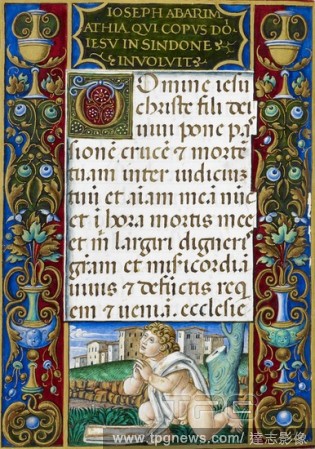 IOSEPH ABARIM
ATHIA QVI COPVS DÕ
IESV IN SINDONE
INVOLVIT
Domine iesu
christe fili dei
uiui pone pas
sionē crucē ⁊ mortē
tuam inter iudiciuz
tuū et aīam meā nūc
et ī hora mortis mee
et m̄ largiri digneris
gīam et misicordiā
uiuis ⁊ defūctis req
em ⁊ ueniā. ecclesie
TPG
www.tpgnews.com/ 達志影像